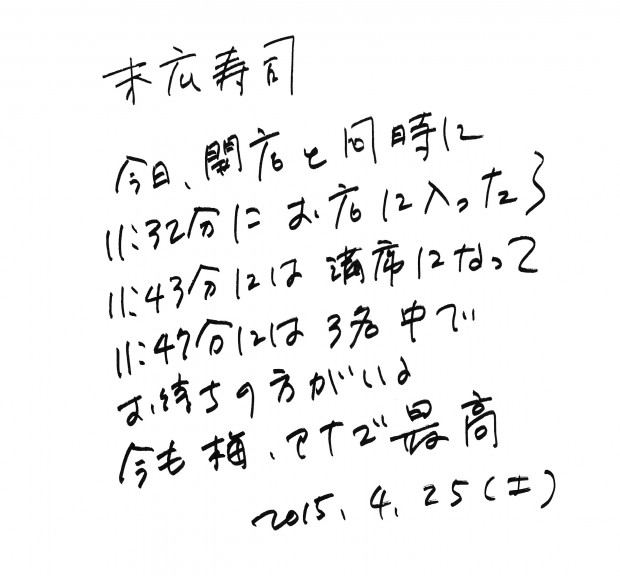 末広寿司
今日、開店と同時に
11:32分に お店に入ったら
11:43分には 満席になって
11:47分には 3名 中で
お待ちの方がいる
今も 梅、アナゴ 最高
2015. 4. 25(土)